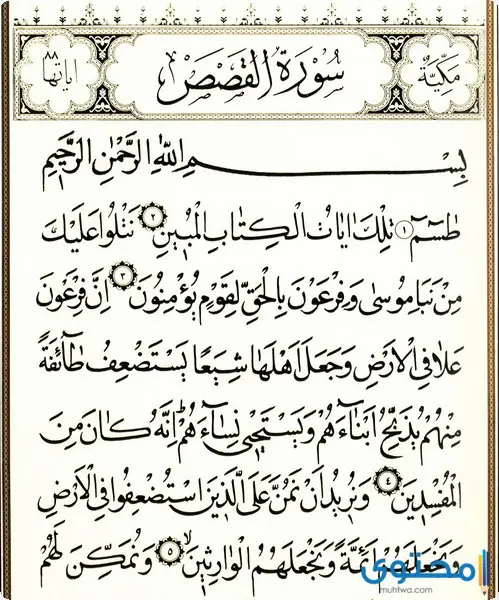 مَكِّيَّةٌ سُورَةُ الْقَصَصِ اٰيَاتُهَا ٨٨
بِسْمِ اللّٰهِ الرَّحْمٰنِ الرَّحٖيمِ
طٰسٓمٓ ١ تِلْكَ اٰيَاتُ الْكِتَابِ الْمُبٖينِ ٢ نَتْلُوا عَلَيْكَ
مِنْ نَبَاِ مُوسٰى وَفِرْعَوْنَ بِالْحَقِّ لِقَوْمٍ يُؤْمِنُونَ ٣ اِنَّ فِرْعَوْنَ
عَلَا فِي الْاَرْضِ وَجَعَلَ اَهْلَهَا شِيَعًا يَسْتَضْعِفُ طَٓائِفَةً
مِنْهُمْ يُذَبِّحُ اَبْنَٓاءَهُمْ وَيَسْتَحْيٖ نِسَٓاءَهُمْ اِنَّهُ كَانَ مِنَ
الْمُفْسِدٖينَ ٤ وَنُرٖيدُ اَنْ نَمُنَّ عَلَى الَّذٖينَ اسْتُضْعِفُوا فِي الْاَرْضِ
وَنَجْعَلَهُمْ اَئِمَّةً وَنَجْعَلَهُمُ الْوَارِثٖينَ ٥ وَنُمَكِّنَ لَهُمْ
محتوى
muhtwa.com